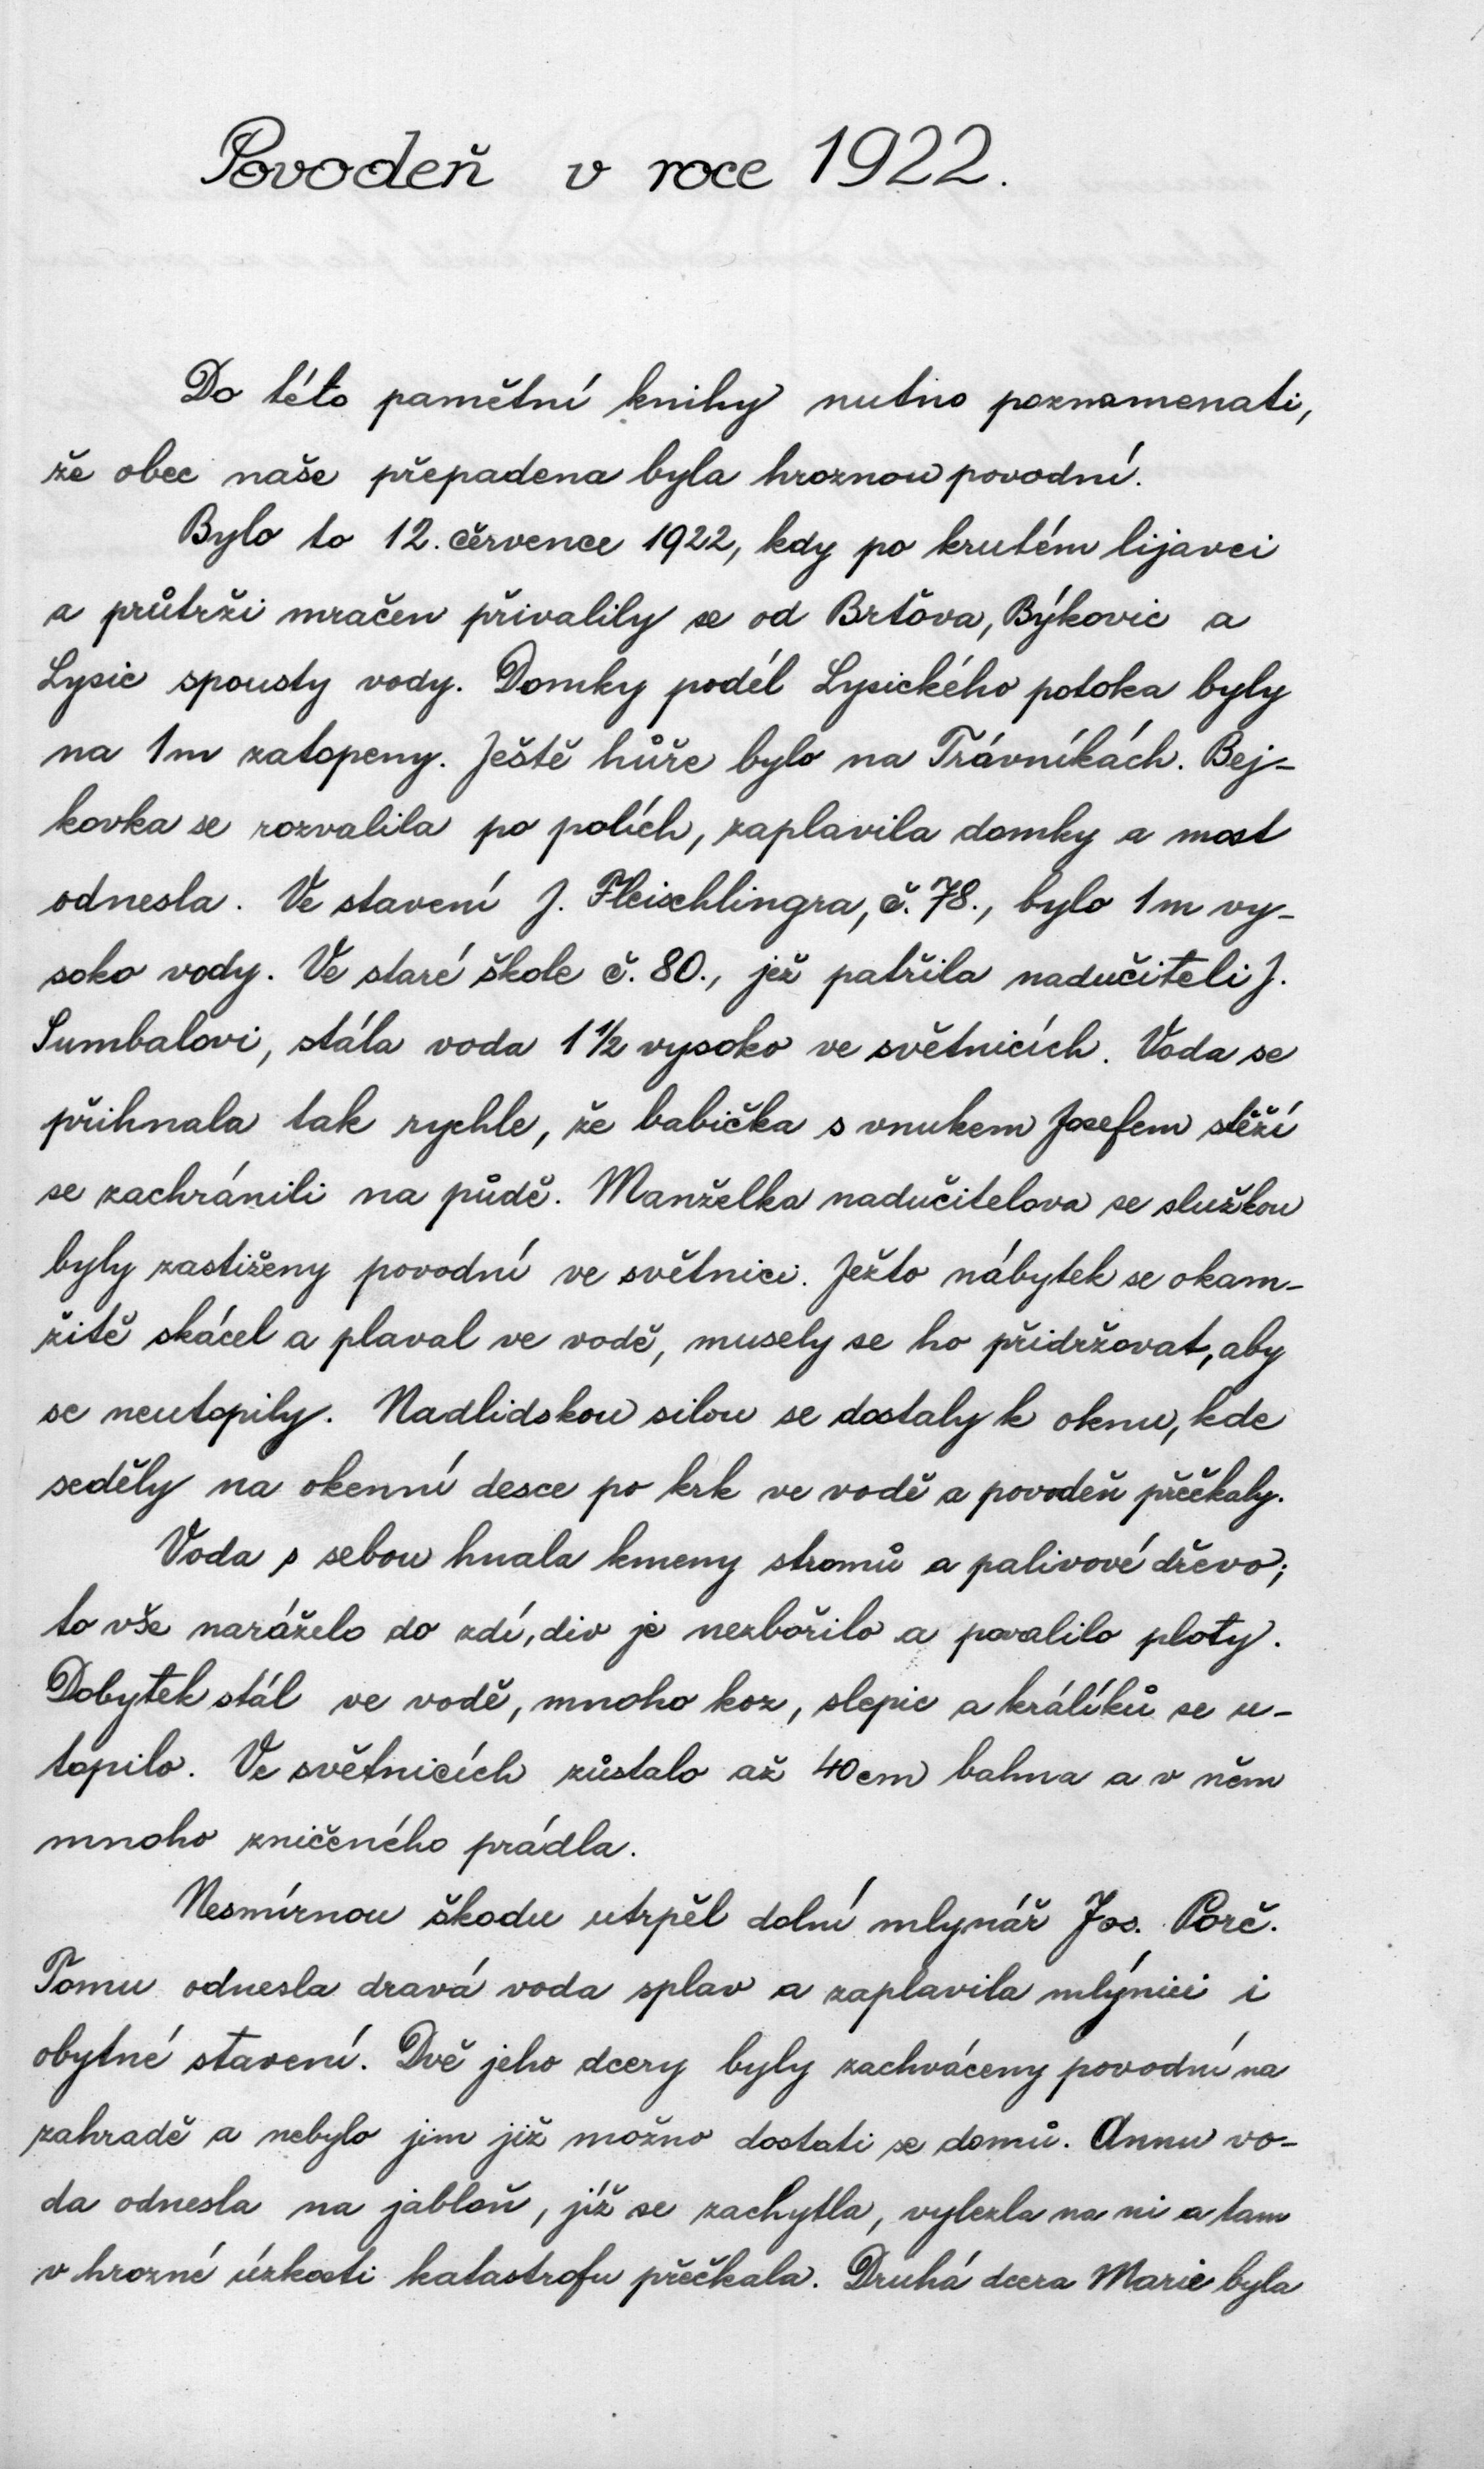 Povodeň v roce 1922.
Do této pamětní knihy nutno poznamenati,
že obec naše přepadena byla hroznou povodní.
Bylo to 12. července 1922, kdy po krutém lijavci
a průtrži mračen přivalily se od Brťova, Býkovic a
Lysic spousty vody. Domky podél Lysického potoka byly
na 1m zatopeny. Ještě hůře bylo na Trávníkách. Bej-
kovka se rozvalila po polích, zaplavila domky a most
odnesla. Ve stavení J. Fleischlingra, č. 78., bylo 1m vy-
soko vody. Ve staré škole č. 80., jež patřila nadučiteli J.
Sumbalovi, stála voda 1 1/2 vysoko ve světnicích. Voda se
přihnala tak rychle, že babička s vnukem Josefem stěží
se zachránili na půdě. Manželka nadučitelova se služkou
byly zastiženy povodní ve světnici. Ježto nábytek se okam-
žitě skácel a plaval ve vodě, musely se ho přidržovat, aby
se neutopily. Nadlidskou silou se dostaly k oknu, kde
seděly na okenní desce po krk ve vodě a povodeň přečkaly.
Voda s sebou hnala kmeny stromů a palivové dřevo;
to vše naráželo do zdí, div je nezbořilo a povalilo ploty.
Dobytek stál ve vodě, mnoho koz, slepic a králíků se u-
topilo. Ve světnicích zůstalo až 40cm bahna a v něm
mnoho zničeného prádla.
Nesmírnou škodu utrpěl dolní mlynář Jos. Porč.
Tomu odnesla dravá voda splav a zaplavila mlýnici i
obytné stavení. Dvě jeho dcery byly zachváceny povodní na
zahradě a nebylo jim již možno dostati se domů. Annu vo-
da odnesla na jabloň, jíž se zachytla, vylezla na ni a tam
v hrozné úzkosti katastrofu přečkala. Druhá dcera Marie byla